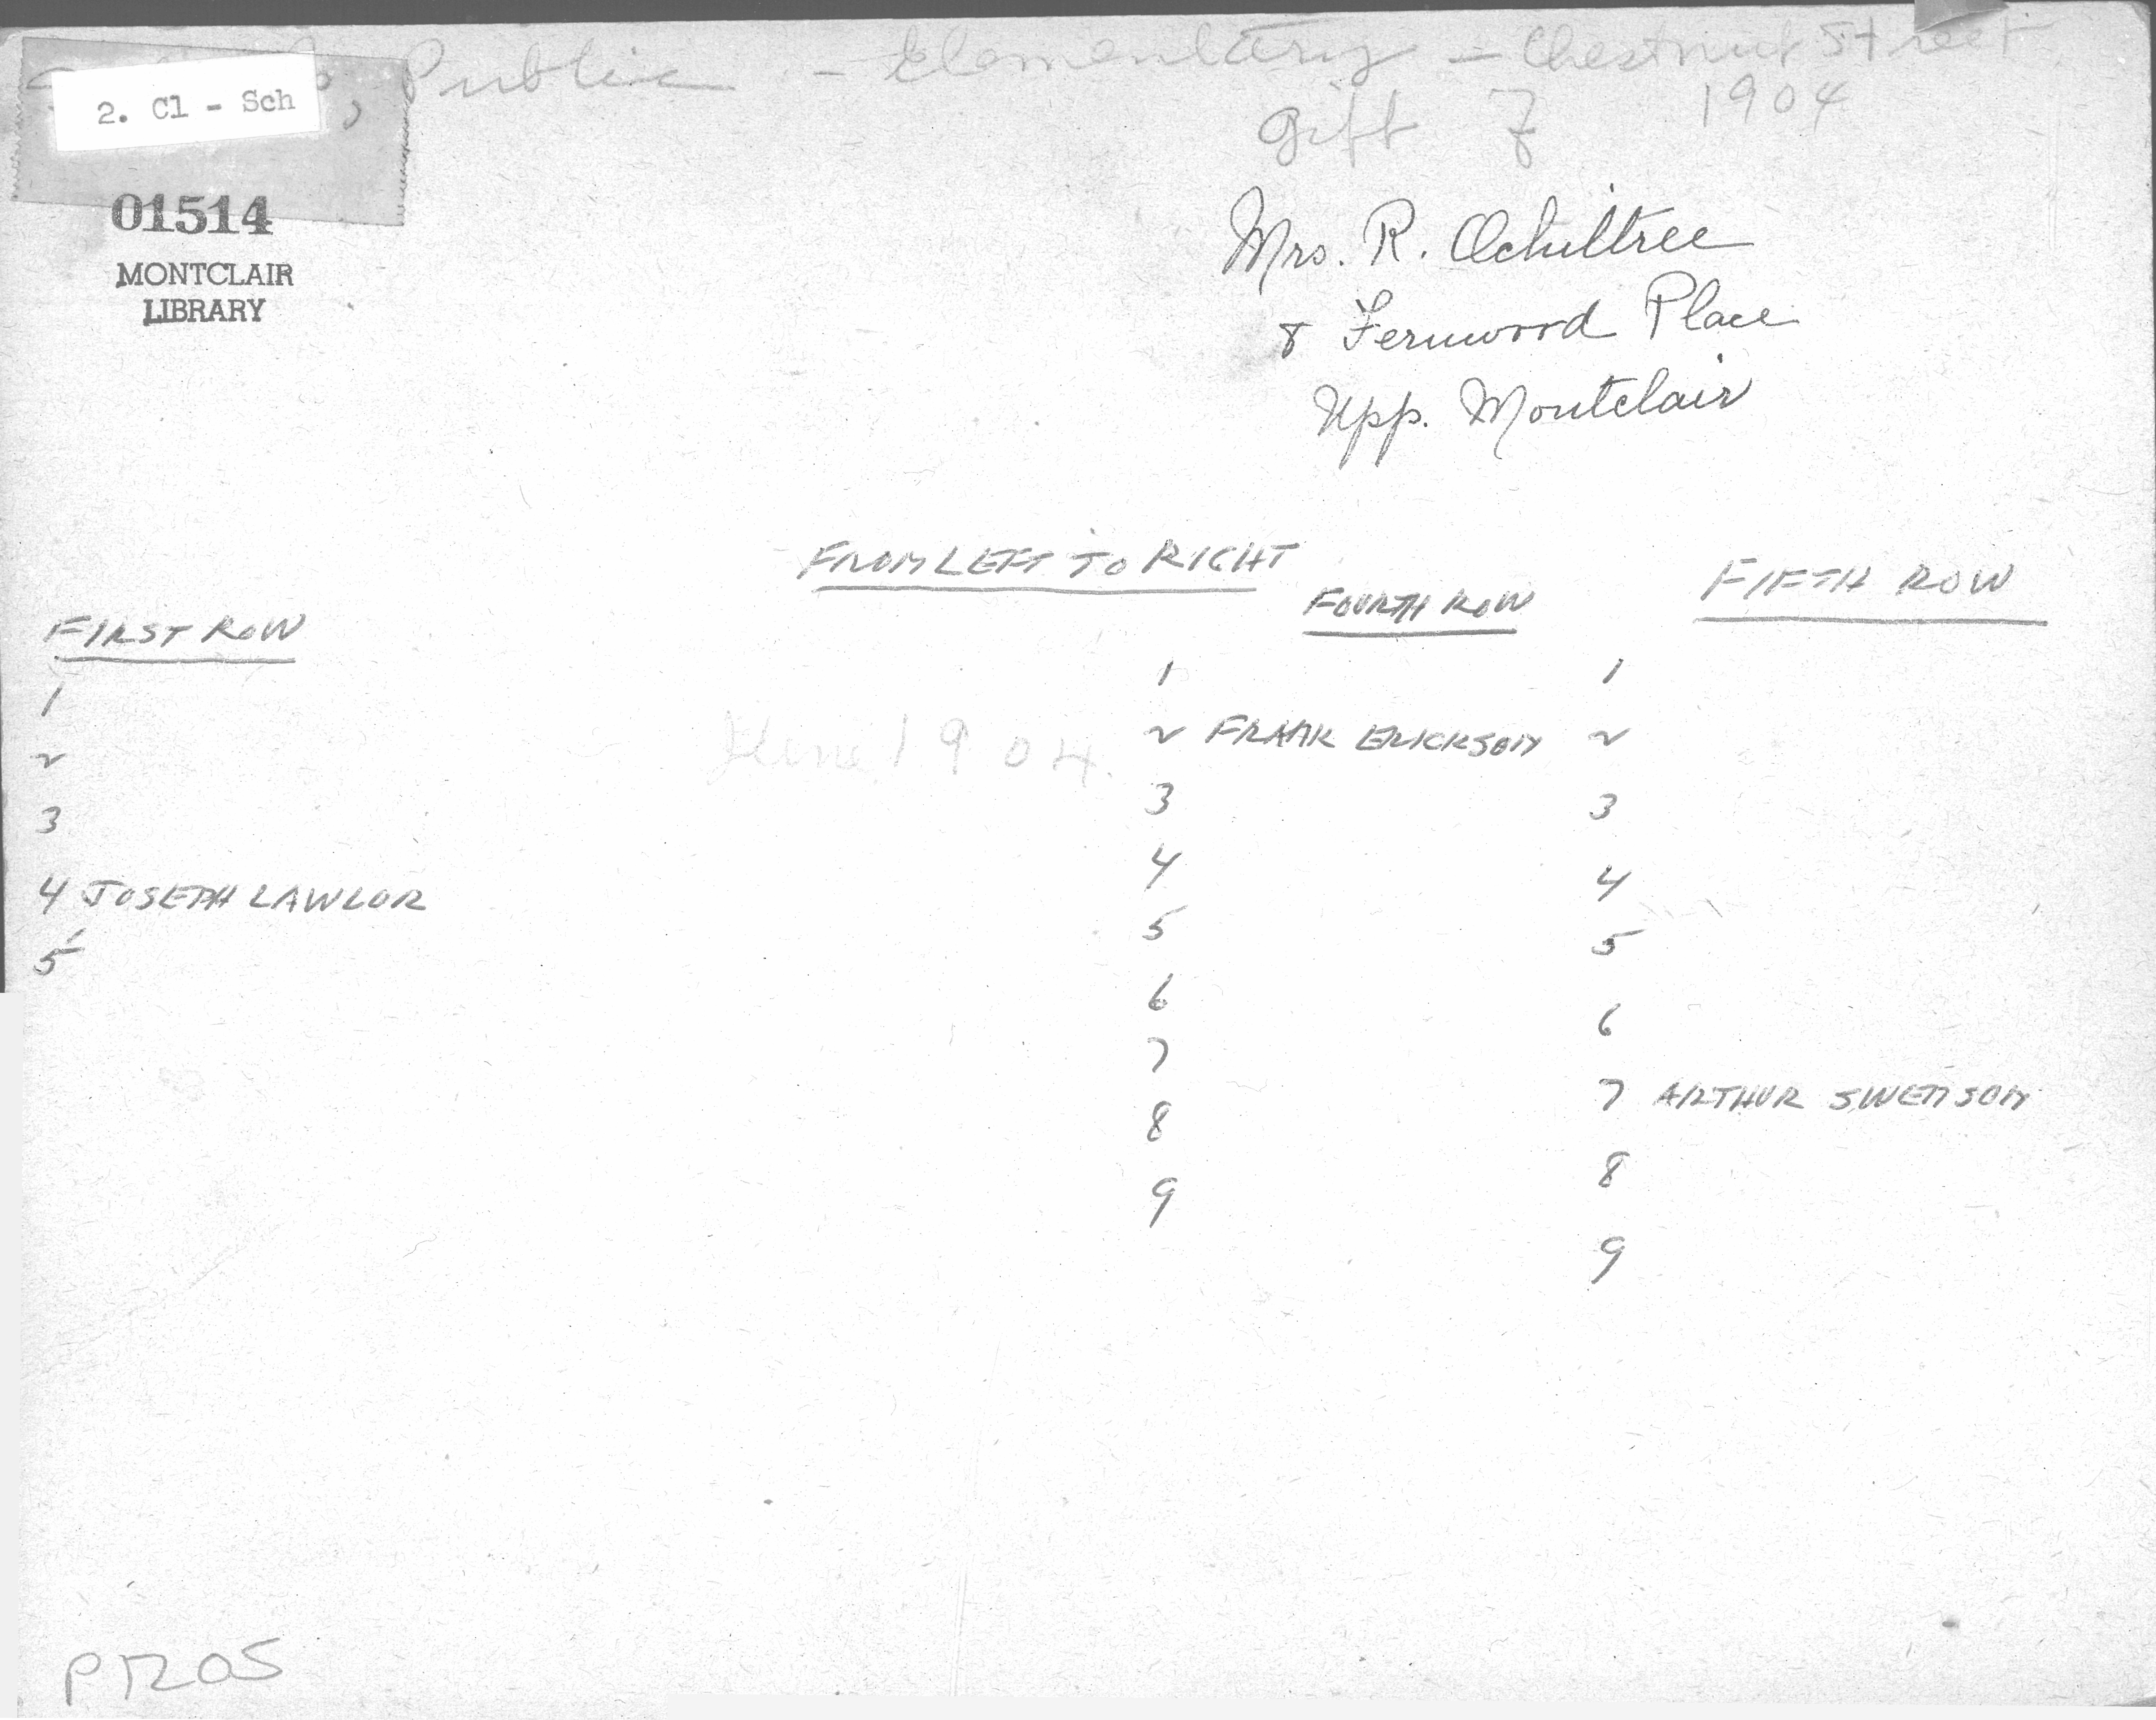 Public - Elementary - Chestnut Street
2. Cl - Sch
Gift of 1904
01514
MONTCLAIR
LIBRARY
Mrs. R. Ochiltree
8 Fernwood Place
Upp. Montclair
FROM LEFT TO RIGHT
FIRST ROW
1
2
3
4 JOSEPH LAWLOR
5
June 1904.
FOURTH ROW
1
2 FRANK ERICKSON
3
4
5
6
7
8
9
FIFTH ROW
1
2
3
4
5
6
7 ARTHUR SWENSON
8
9